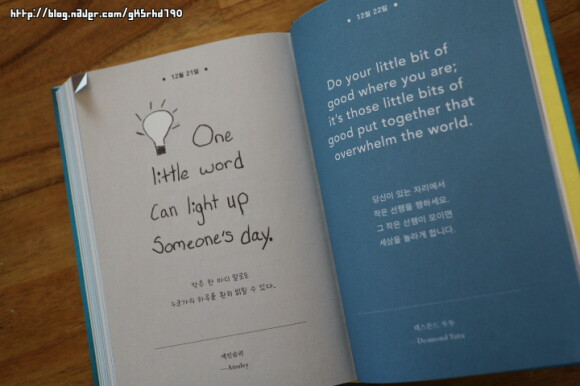 http://blog.naver.com/gk5rhd790
• 12월 21일 •
One
little word
can light up
someone's day.
작은 한 마디 말로도
누군가의 하루를 환히 밝힐 수 있다.
에인슬리
—Ainsley
• 12월 22일 •
Do your little bit of
good where you are;
it's those little bits of
good put together that
overwhelm the world.
당신이 있는 자리에서
작은 선행을 행하세요.
그 작은 선행이 모이면
세상을 놀라게 합니다.
데스몬드 투투
—Desmond Tutu